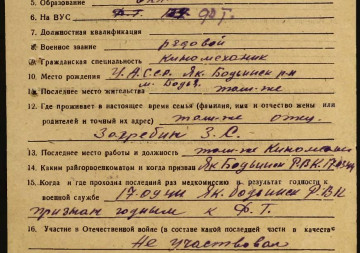 5. Образование
6. На ВУС Ф.Т.
7. Должностная квалификация
8. Военное звание рядовой
9. Гражданская специальность киномеханик
10. Место рождения У.А.С.с.р. Як. Бодьинск. р-н
11. Последнее место жительства там-же
12. Где проживает в настоящее время семья (фамилия, имя и отчество жены или
родителей и точный их адрес) там-же отец.
Загребин З. С.
13. Последнее место работы и должность там-же киномехани
14. Каким райгорвоенкоматом и когда признан Як. Бодьинск РВК
15. Когда и где проходил последний раз медкомиссию и результат годности к
военной службе Як. Бодьинск РВК
признан годным к Ф.Т.
16. Участие в Отечественной войне (в составе какой последней части в качестве
Не участвовал